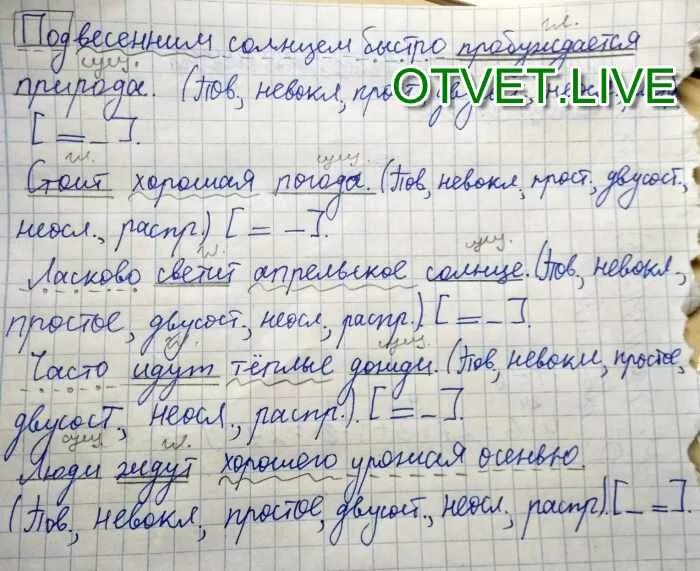 гл.
Под весенним солнцем быстро пробуждается
сущ.
природа. (Пов, невокл, прост,
OTVET.LIVE
[ = – ].
гл. сущ.
Стоит хорошая погода. (Пов, невокл, прост, двусост,
неосл., распр.) [ = – ].
гл. сущ.
Ласково светит апрельское солнце. (Пов, невокл.,
простое, двусост, неосл., распр.) [ = – ].
гл. сущ.
Часто идут тёплые дожди. (Пов, невокл, простое,
двусост, неосл., распр.). [ = – ].
сущ. гл.
Люди ждут хорошего урожая осенью
(Пов, невокл, простое, двусост., неосл., распр). [ – = ].